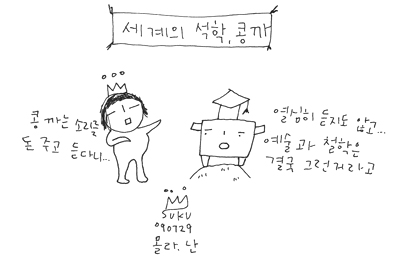 세계의 석학, 콩까
콩 까는 소리를
돈 주고 듣다니...
열심히 듣지도 않고...
예술과 철학은
결국 그런거라고
SUKU
090729
몰라. 난